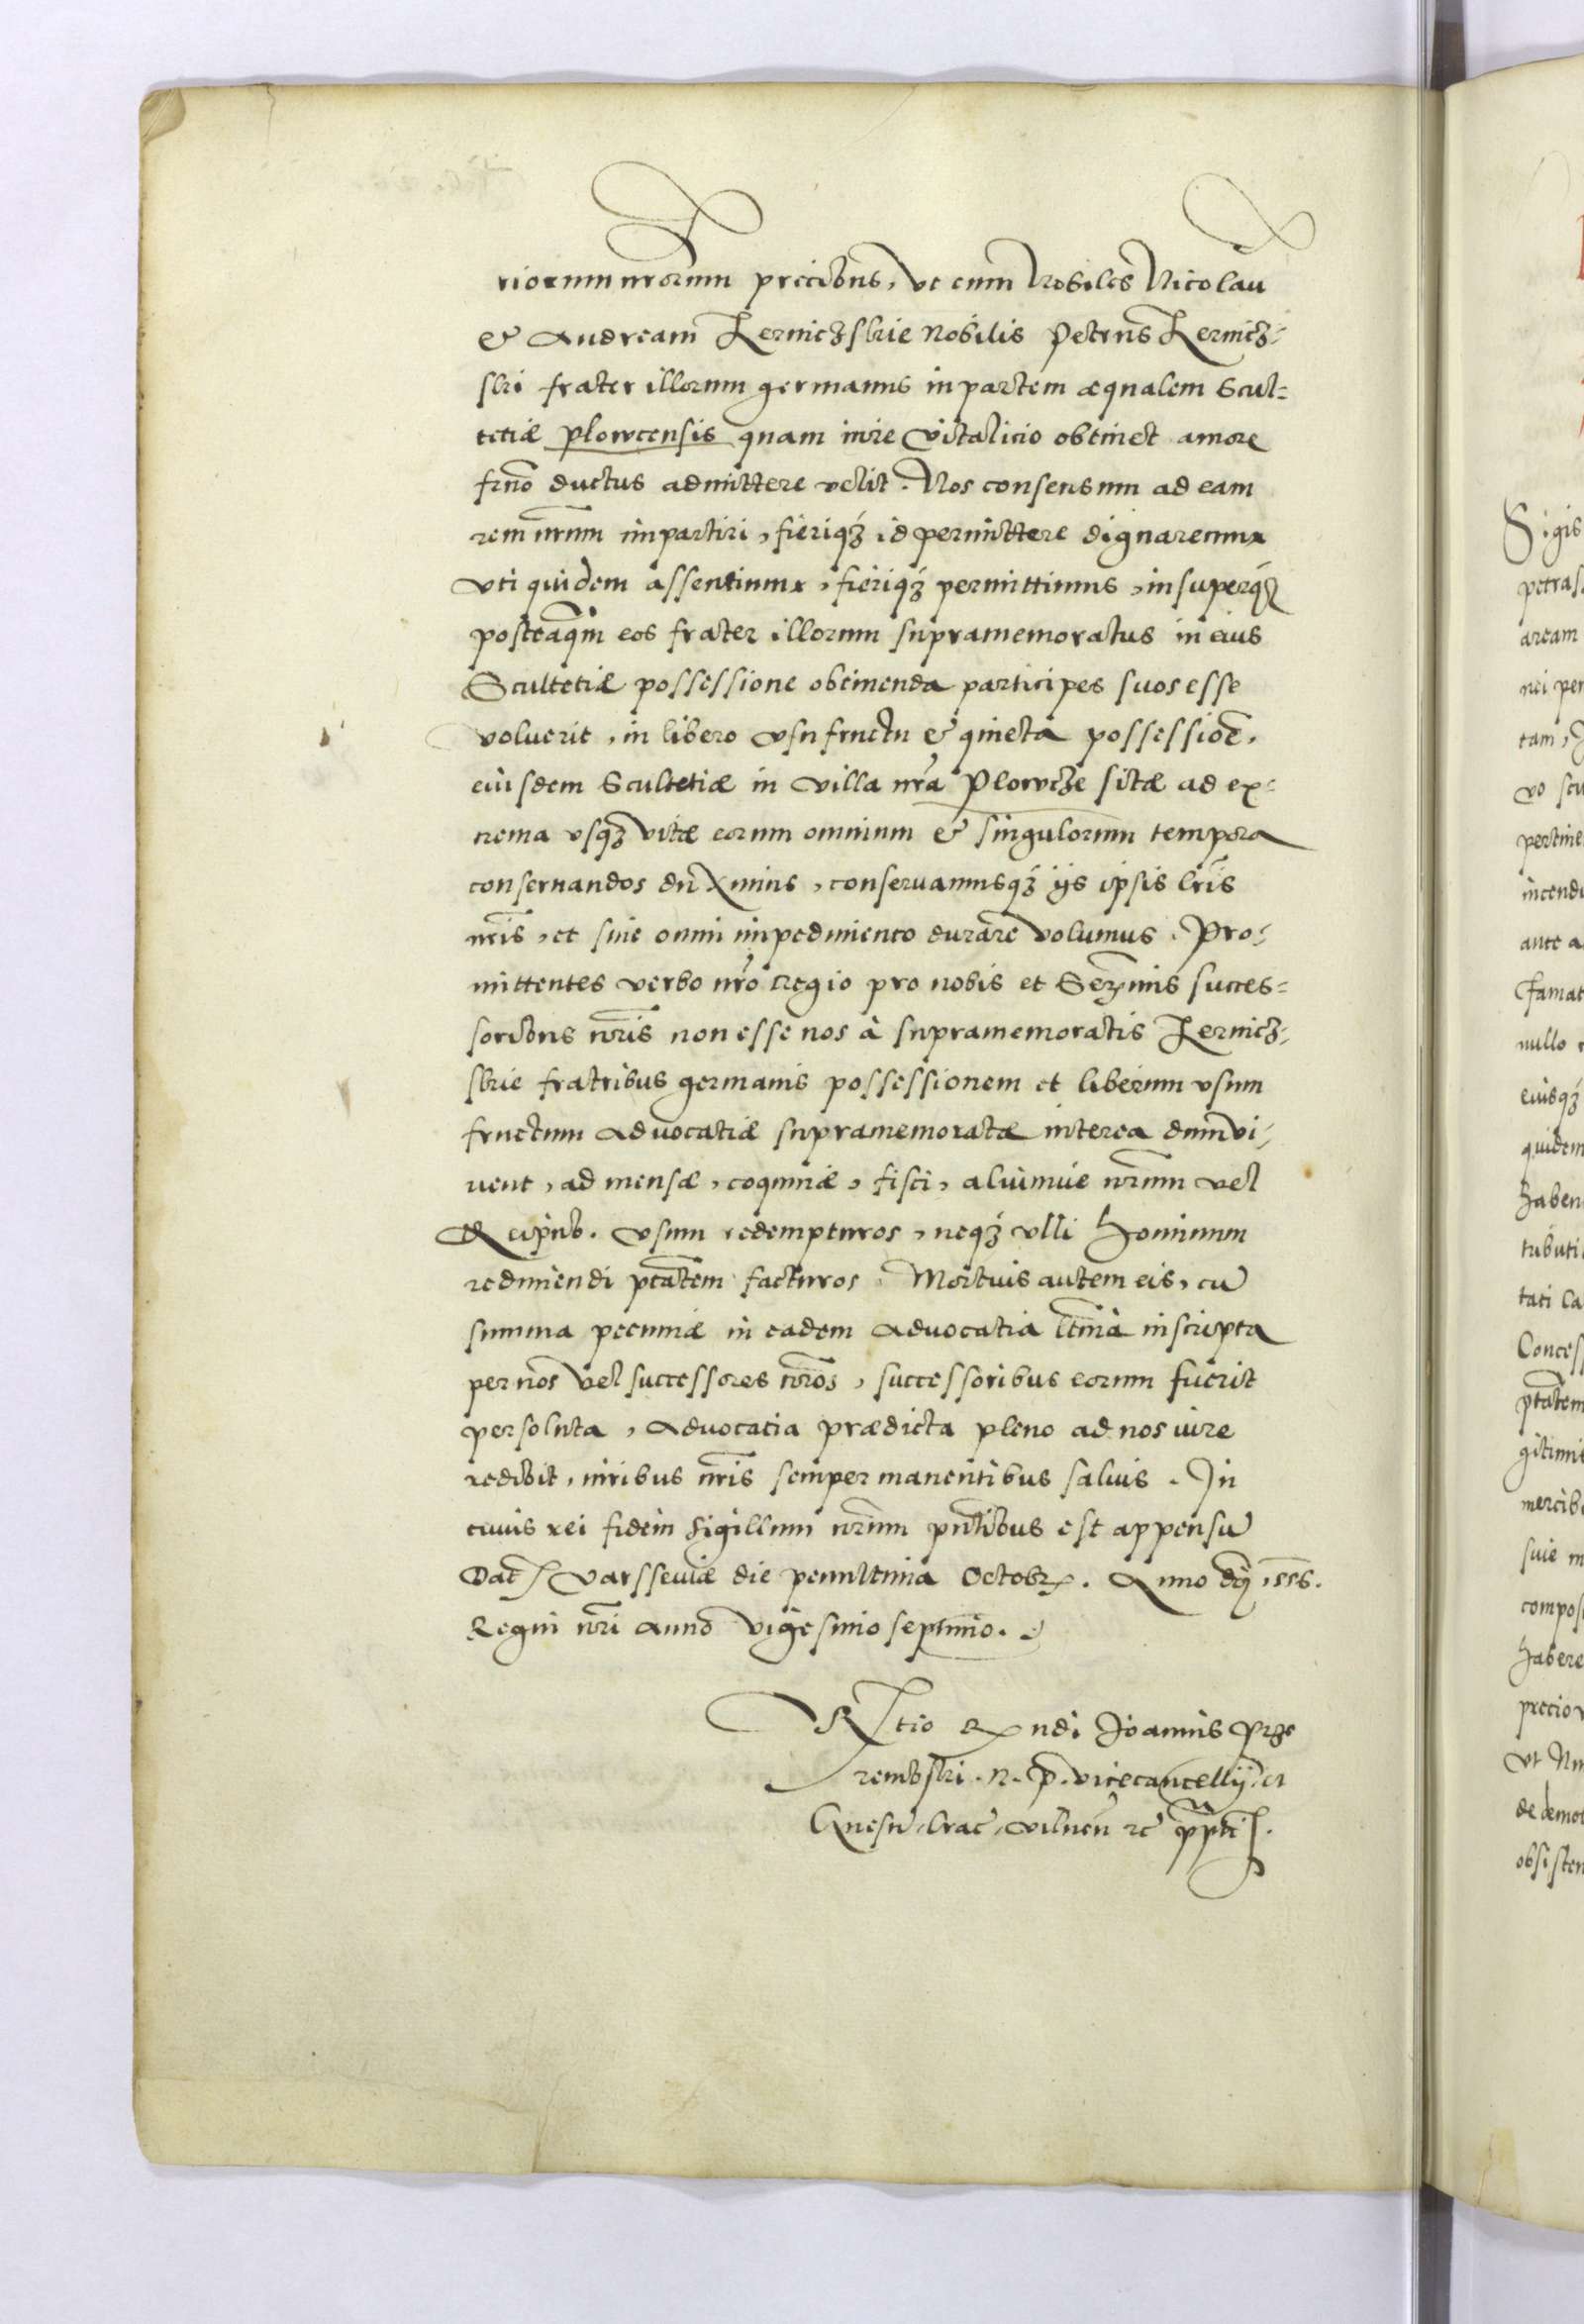 riorum nrorum precibus, ut cum Nobiles Nicolau
& Andream Zerniczskie Nobilis Petrus Zernicz-
ski frater illorum germanus in partem æqualem Scul=
tetiæ plowcensis quam iure vitalicio obtinet amore
frno ductus admittere velit. Nos consensum ad eam
rem nrum impartiri, fieriqz id permittere dignaremur
uti quidem assentimur, fieriqz permittimus, insuperqz
posteaqm eos frater illorum supramemoratus in eius
Scultetiæ possessione obtinenda participes suos esse
voluerit, in libero usufructu & quieta possessioe,
eiusdem Scultetiæ in villa nra Plowcze sitæ ad ex-
trema usqz vitæ eorum omnium & singulorum tempora
conservandos duximus, conservamusqz iis ipsis lris
nris, et sine omni impedimento durare volumus. Pro-
mittentes verbo nro Regio pro nobis et Sermis succes=
soribus nris non esse nos à supramemoratis Zernicz-
skie fratribus germanis possessionem et liberum usum
fructum advocatiæ supramemoratæ interea dum vi-
vent, ad mensæ, coquinæ, fisci, aliumve nrum vel
Reipub. usum redempturos, neqz ulli hominum
redimendi ptatem facturos. Mortuis autem eis, cu
summa pecuniæ in eadem advocatia ltime inscripta
per nos vel successores nros, successoribus eorum fuerit
persoluta, advocatia prædicta pleno ad nos iure
redibit, iuribus nris semper manentibus salvis. In
cuius rei fidem sigillum nrum pntibus est appensu
Dat Varsseviæ die penultima Octobr. Anno dni 1556.
Regni nri anno vigesimo septimo.
Rtio R ndi Joannis Prze
rembski. R. P. vicecancellij. et
Gnesn, Crac, vilnen rc ppti.
Sigis
petras
aream
nei per
tam,
vo scu
pertine
incendi
ante a
famat
nullo
eiusqz
quidem
haben
tubuti
tati la
Conces
ptatem
gitimi
mercib
suie m
compos
habere
precio
Ut Nu
de demo
obsisten